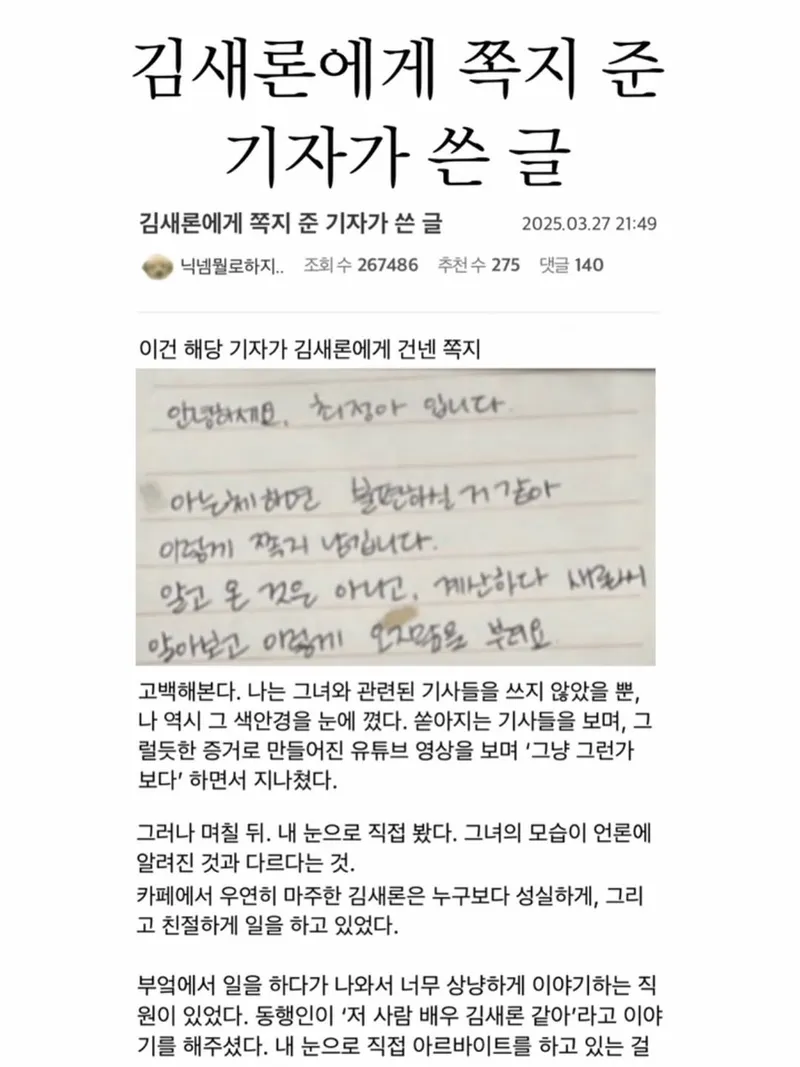 김새론에게 쪽지 준
기자가 쓴 글
김새론에게 쪽지 준 기자가 쓴 글 2025.03.27 21:49
닉넴뭘로하지.. 조회 수 267486 추천 수 275 댓글 140
이건 해당 기자가 김새론에게 건넨 쪽지
안녕하세요, 최정아 입니다.
아는체하면 불편하실 거 같아
이렇게 쪽지 남깁니다.
알고 온 것은 아니고, 계산하다 새론씨
알아보고 이렇게 오지랖을 부려요
고백해본다. 나는 그녀와 관련된 기사들을 쓰지 않았을 뿐,
나 역시 그 색안경을 눈에 꼈다. 쏟아지는 기사들을 보며, 그
럴듯한 증거로 만들어진 유튜브 영상을 보며 ‘그냥 그런가
보다’ 하면서 지나쳤다.
그러나 며칠 뒤. 내 눈으로 직접 봤다. 그녀의 모습이 언론에
알려진 것과 다르다는 것.
카페에서 우연히 마주한 김새론은 누구보다 성실하게, 그리
고 친절하게 일을 하고 있었다.
부엌에서 일을 하다가 나와서 너무 상냥하게 이야기하는 직
원이 있었다. 동행인이 ‘저 사람 배우 김새론 같아’라고 이야
기를 해주셨다. 내 눈으로 직접 아르바이트를 하고 있는 걸